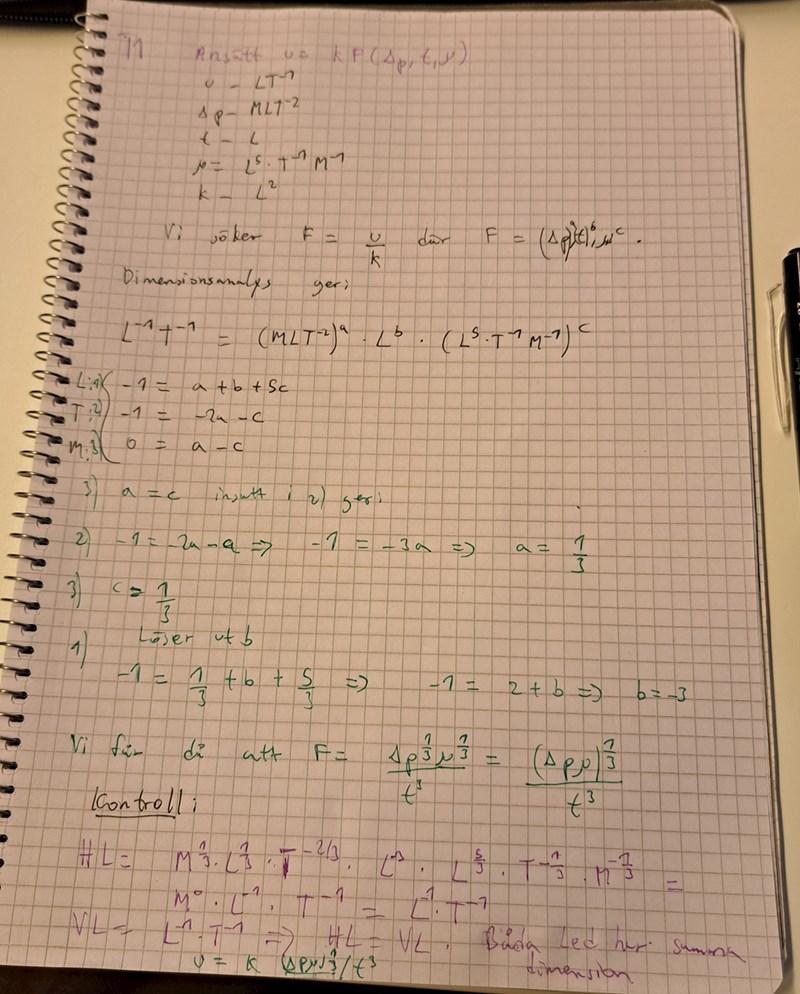 11 Ansätt v = k F(Δp, t, μ)
v - LT⁻¹
Δp - MLT⁻²
t - L
μ = L⁵·T⁻¹M⁻¹
k - L²
Vi söker F = v/k där F = (Δp)ᵃ(t)ᵇ, μᶜ.
Dimensionsanalys ger:
L⁻¹T⁻¹ = (MLT⁻²)ᵃ · Lᵇ · (L⁵·T⁻¹M⁻¹)ᶜ
L:1) -1 = a + b + 5c
T:2) -1 = -2a - c
M:3) 0 = a - c
3) a = c insatt i 2) ger:
2) -1 = -2a - a => -1 = -3a => a = 1/3
3) c = 1/3
1) Löser ut b
-1 = 1/3 + b + 5/3 => -1 = 2 + b => b = -3
Vi får då att F = Δp^(1/3) μ^(1/3) / t³ = (Δpμ)^(1/3) / t³
Kontroll:
HL = M^(1/3) · L^(1/3) · T^(-2/3) · L⁻³ · L^(5/3) · T^(-1/3) · M^(-1/3) =
M⁰ · L⁻¹ · T⁻¹ = L⁻¹·T⁻¹
VL = L⁻¹·T⁻¹ => HL = VL. Båda Led har samma
dimension
v = k (Δpμ)^(1/3)/t³